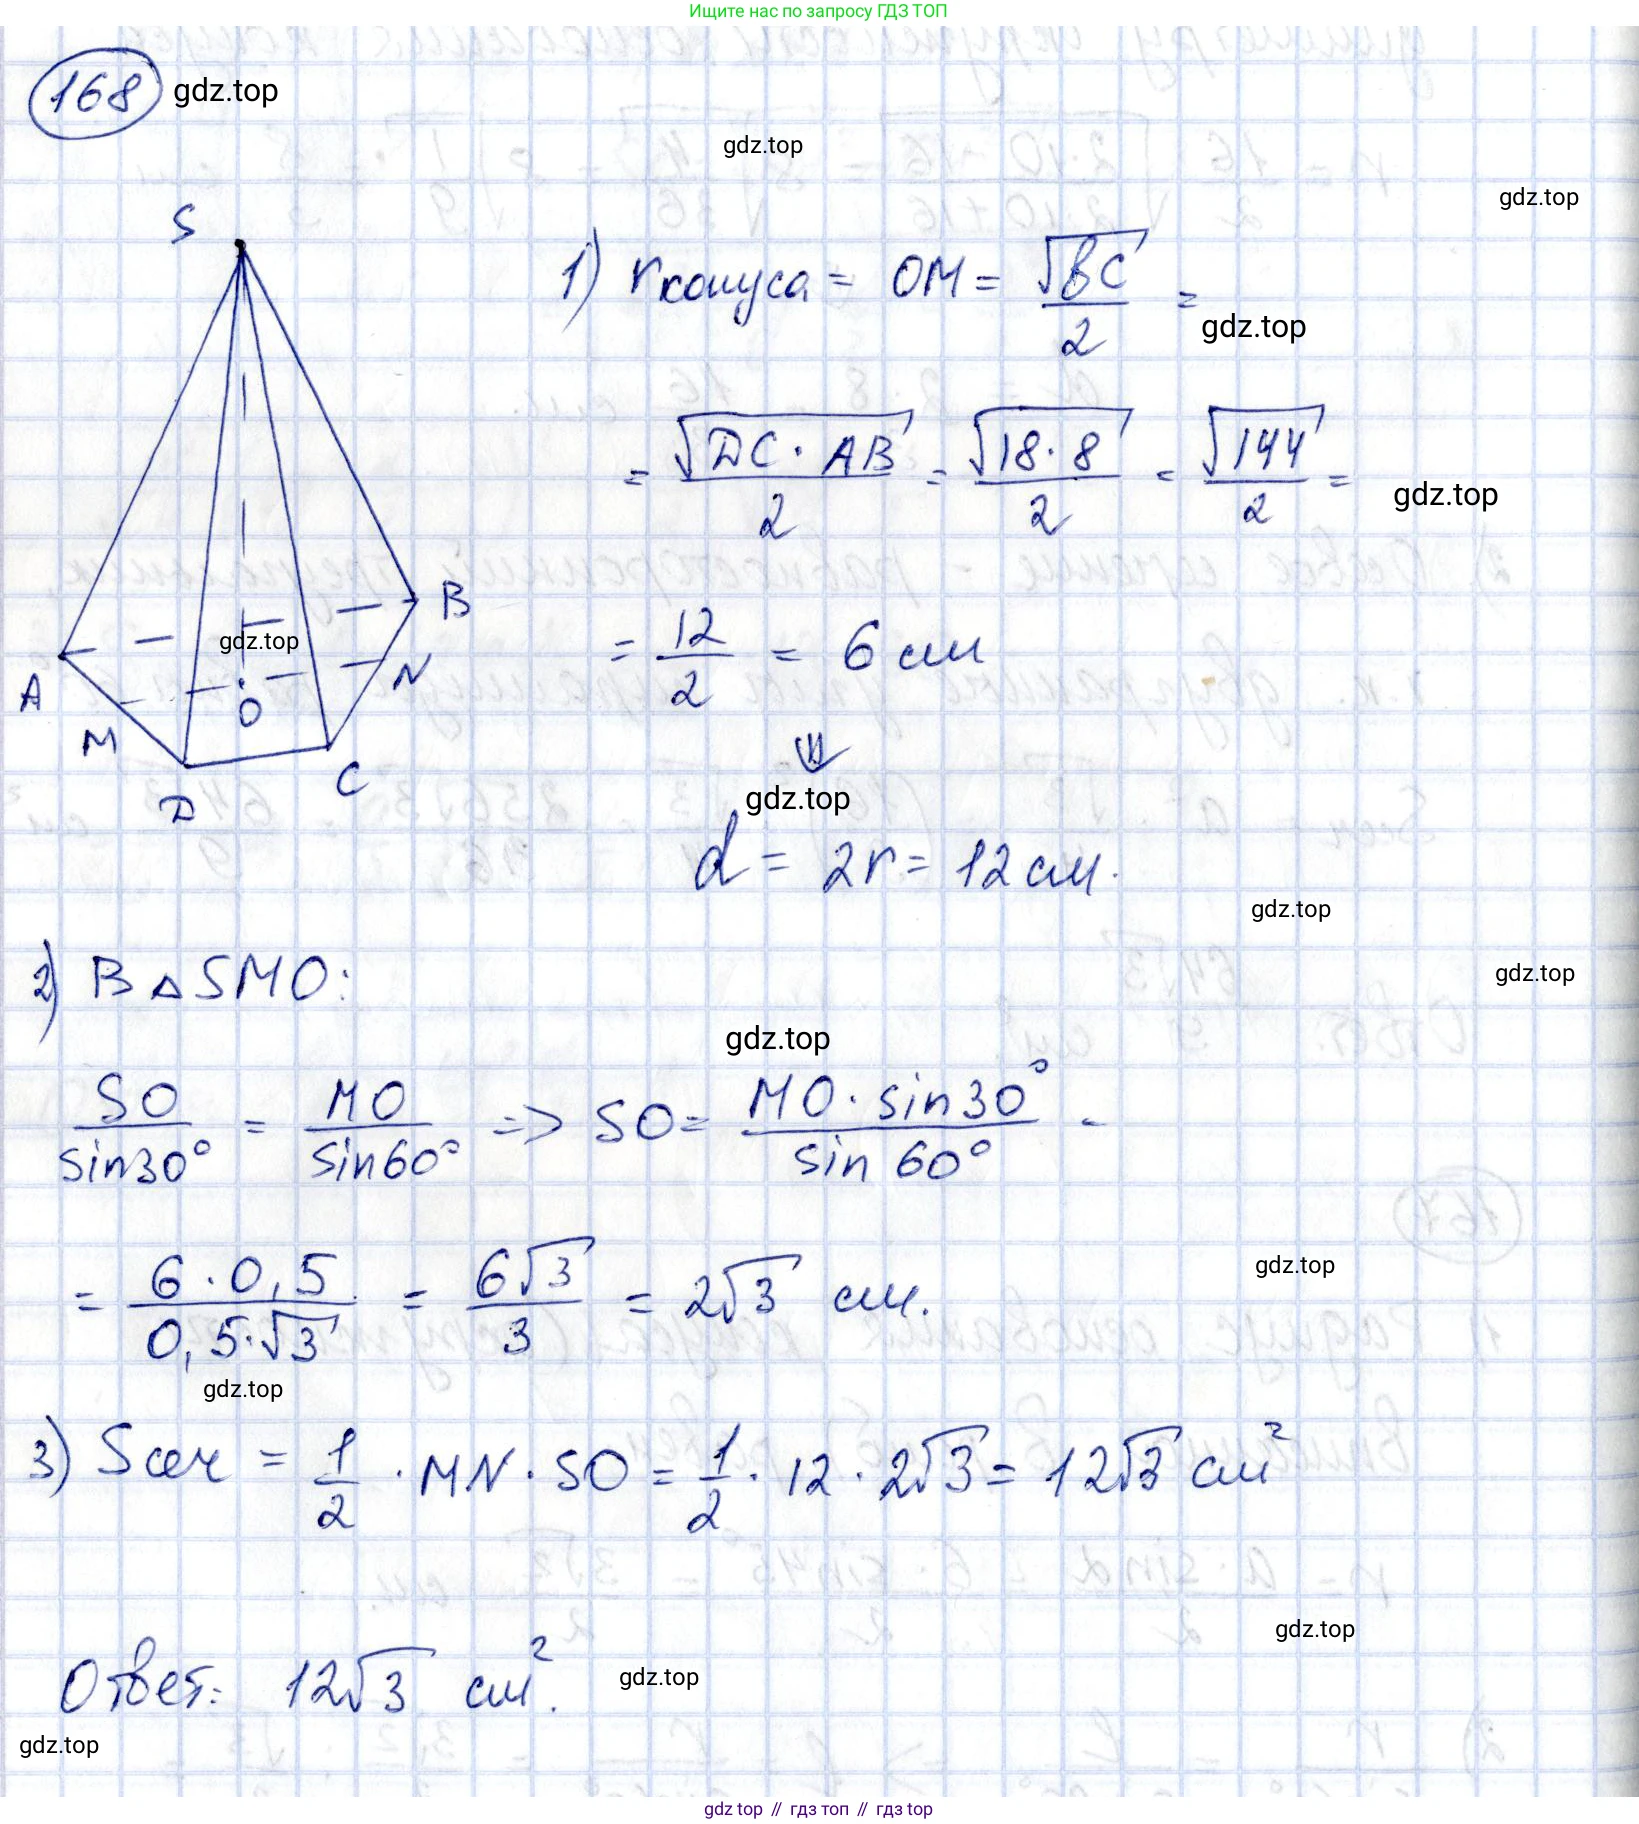 Ищите нас по запросу ГДЗ ТОП
168 gdz.top
gdz.top
gdz.top
S
1) rконуса = OM = √BC / 2 =
gdz.top
= √DC · AB / 2 = √18 · 8 / 2 = √144 / 2 =
gdz.top
B
gdz.top
= 12 / 2 = 6 см
A
N
O
M
⇓
C
gdz.top
D
d = 2r = 12 см.
gdz.top
2) В △ SMO:
gdz.top
gdz.top
SO / sin30° = MO / sin60° => SO = MO · sin30° / sin 60° =
gdz.top
= 6 · 0,5 / 0,5·√3 = 6√3 / 3 = 2√3 см.
gdz.top
3) Sсеч = 1/2 · MN · SO = 1/2 · 12 · 2√3 = 12√3 см²
gdz.top
Ответ: 12√3 см².
gdz.top
gdz.top
gdz top // гдз топ // гдз top